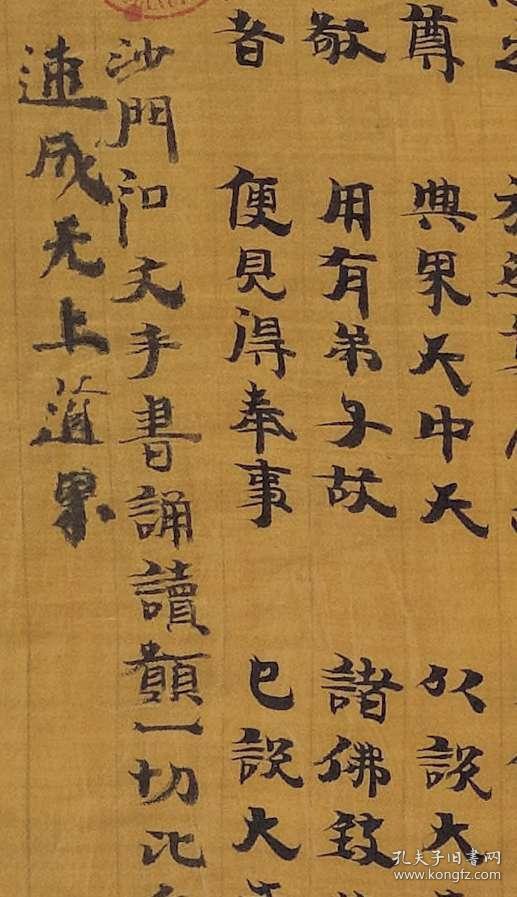 尊 典果天中天 以說大
敬 用有弟子故 諸佛致
者 便見得奉事 已說大
沙門和文手書誦讀願一切比
速成无上道果
孔夫子旧书网
www.kongfz.com